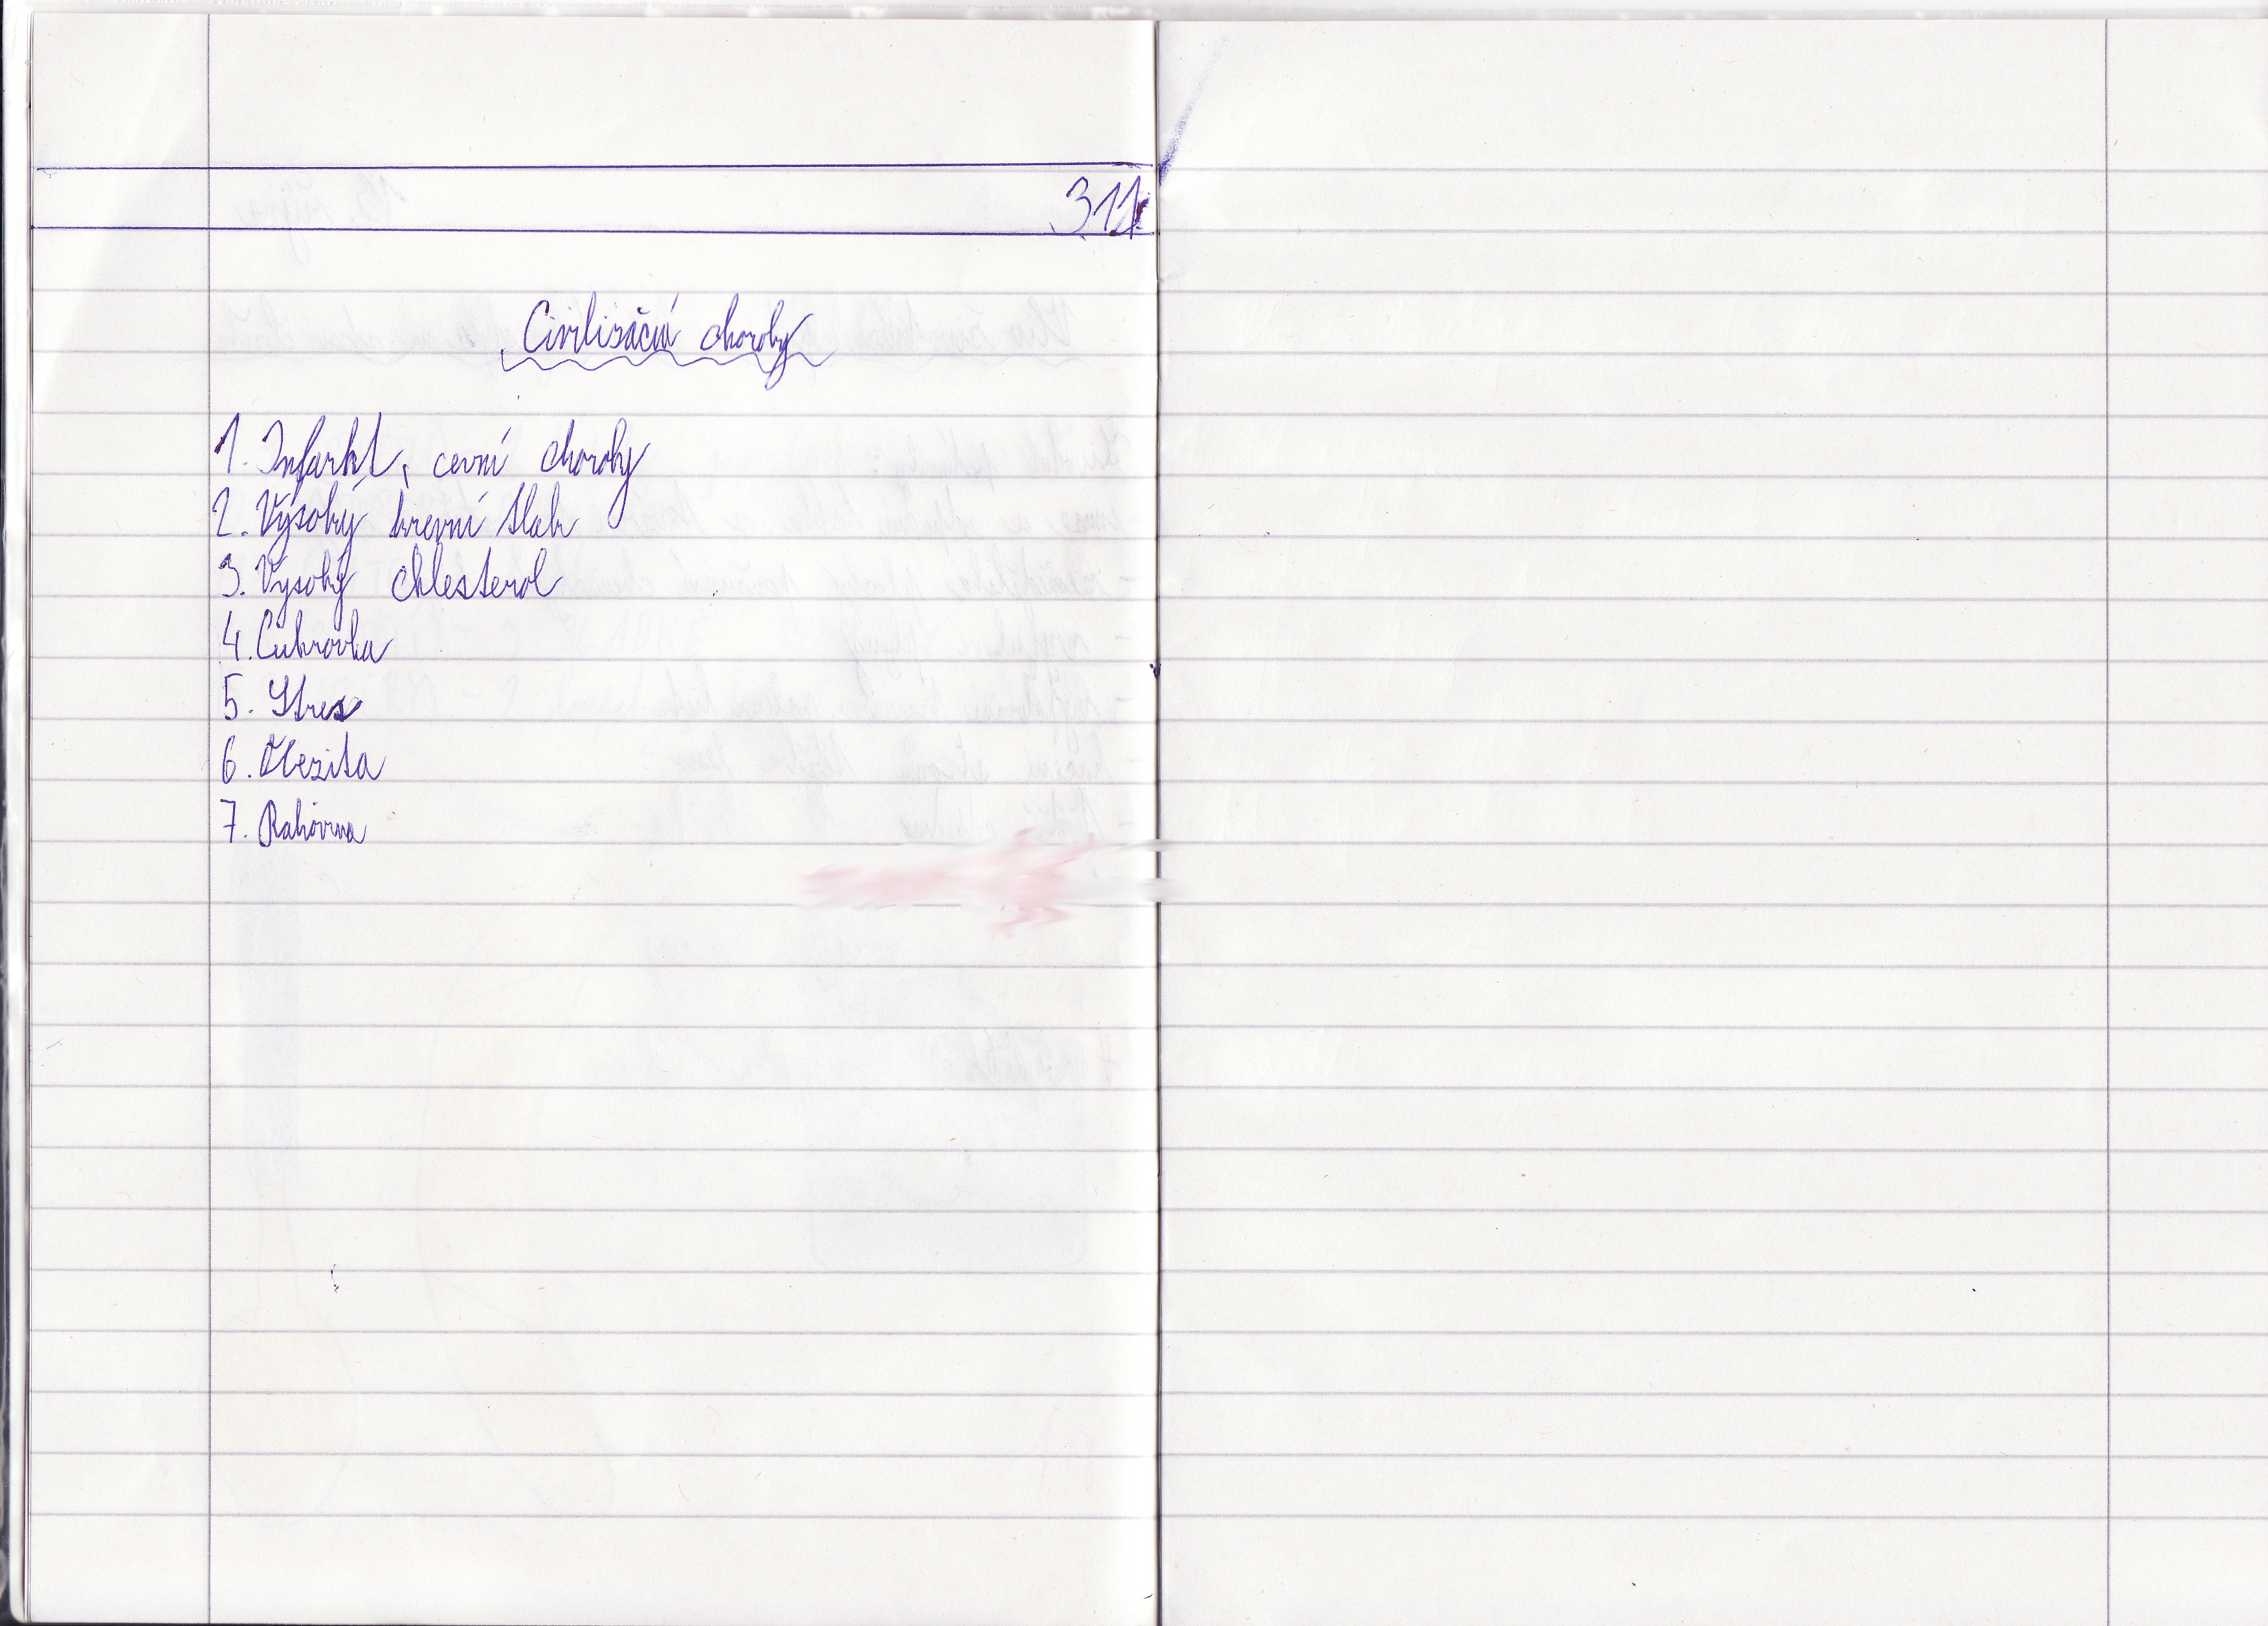 311
Civilizační choroby
1. Infarkt, cevní choroby
2. Výsoký krevní tlak
3. Vysoký chlesterol
4. Cukrovka
5. Stres
6. Obezita
7. Rakovina